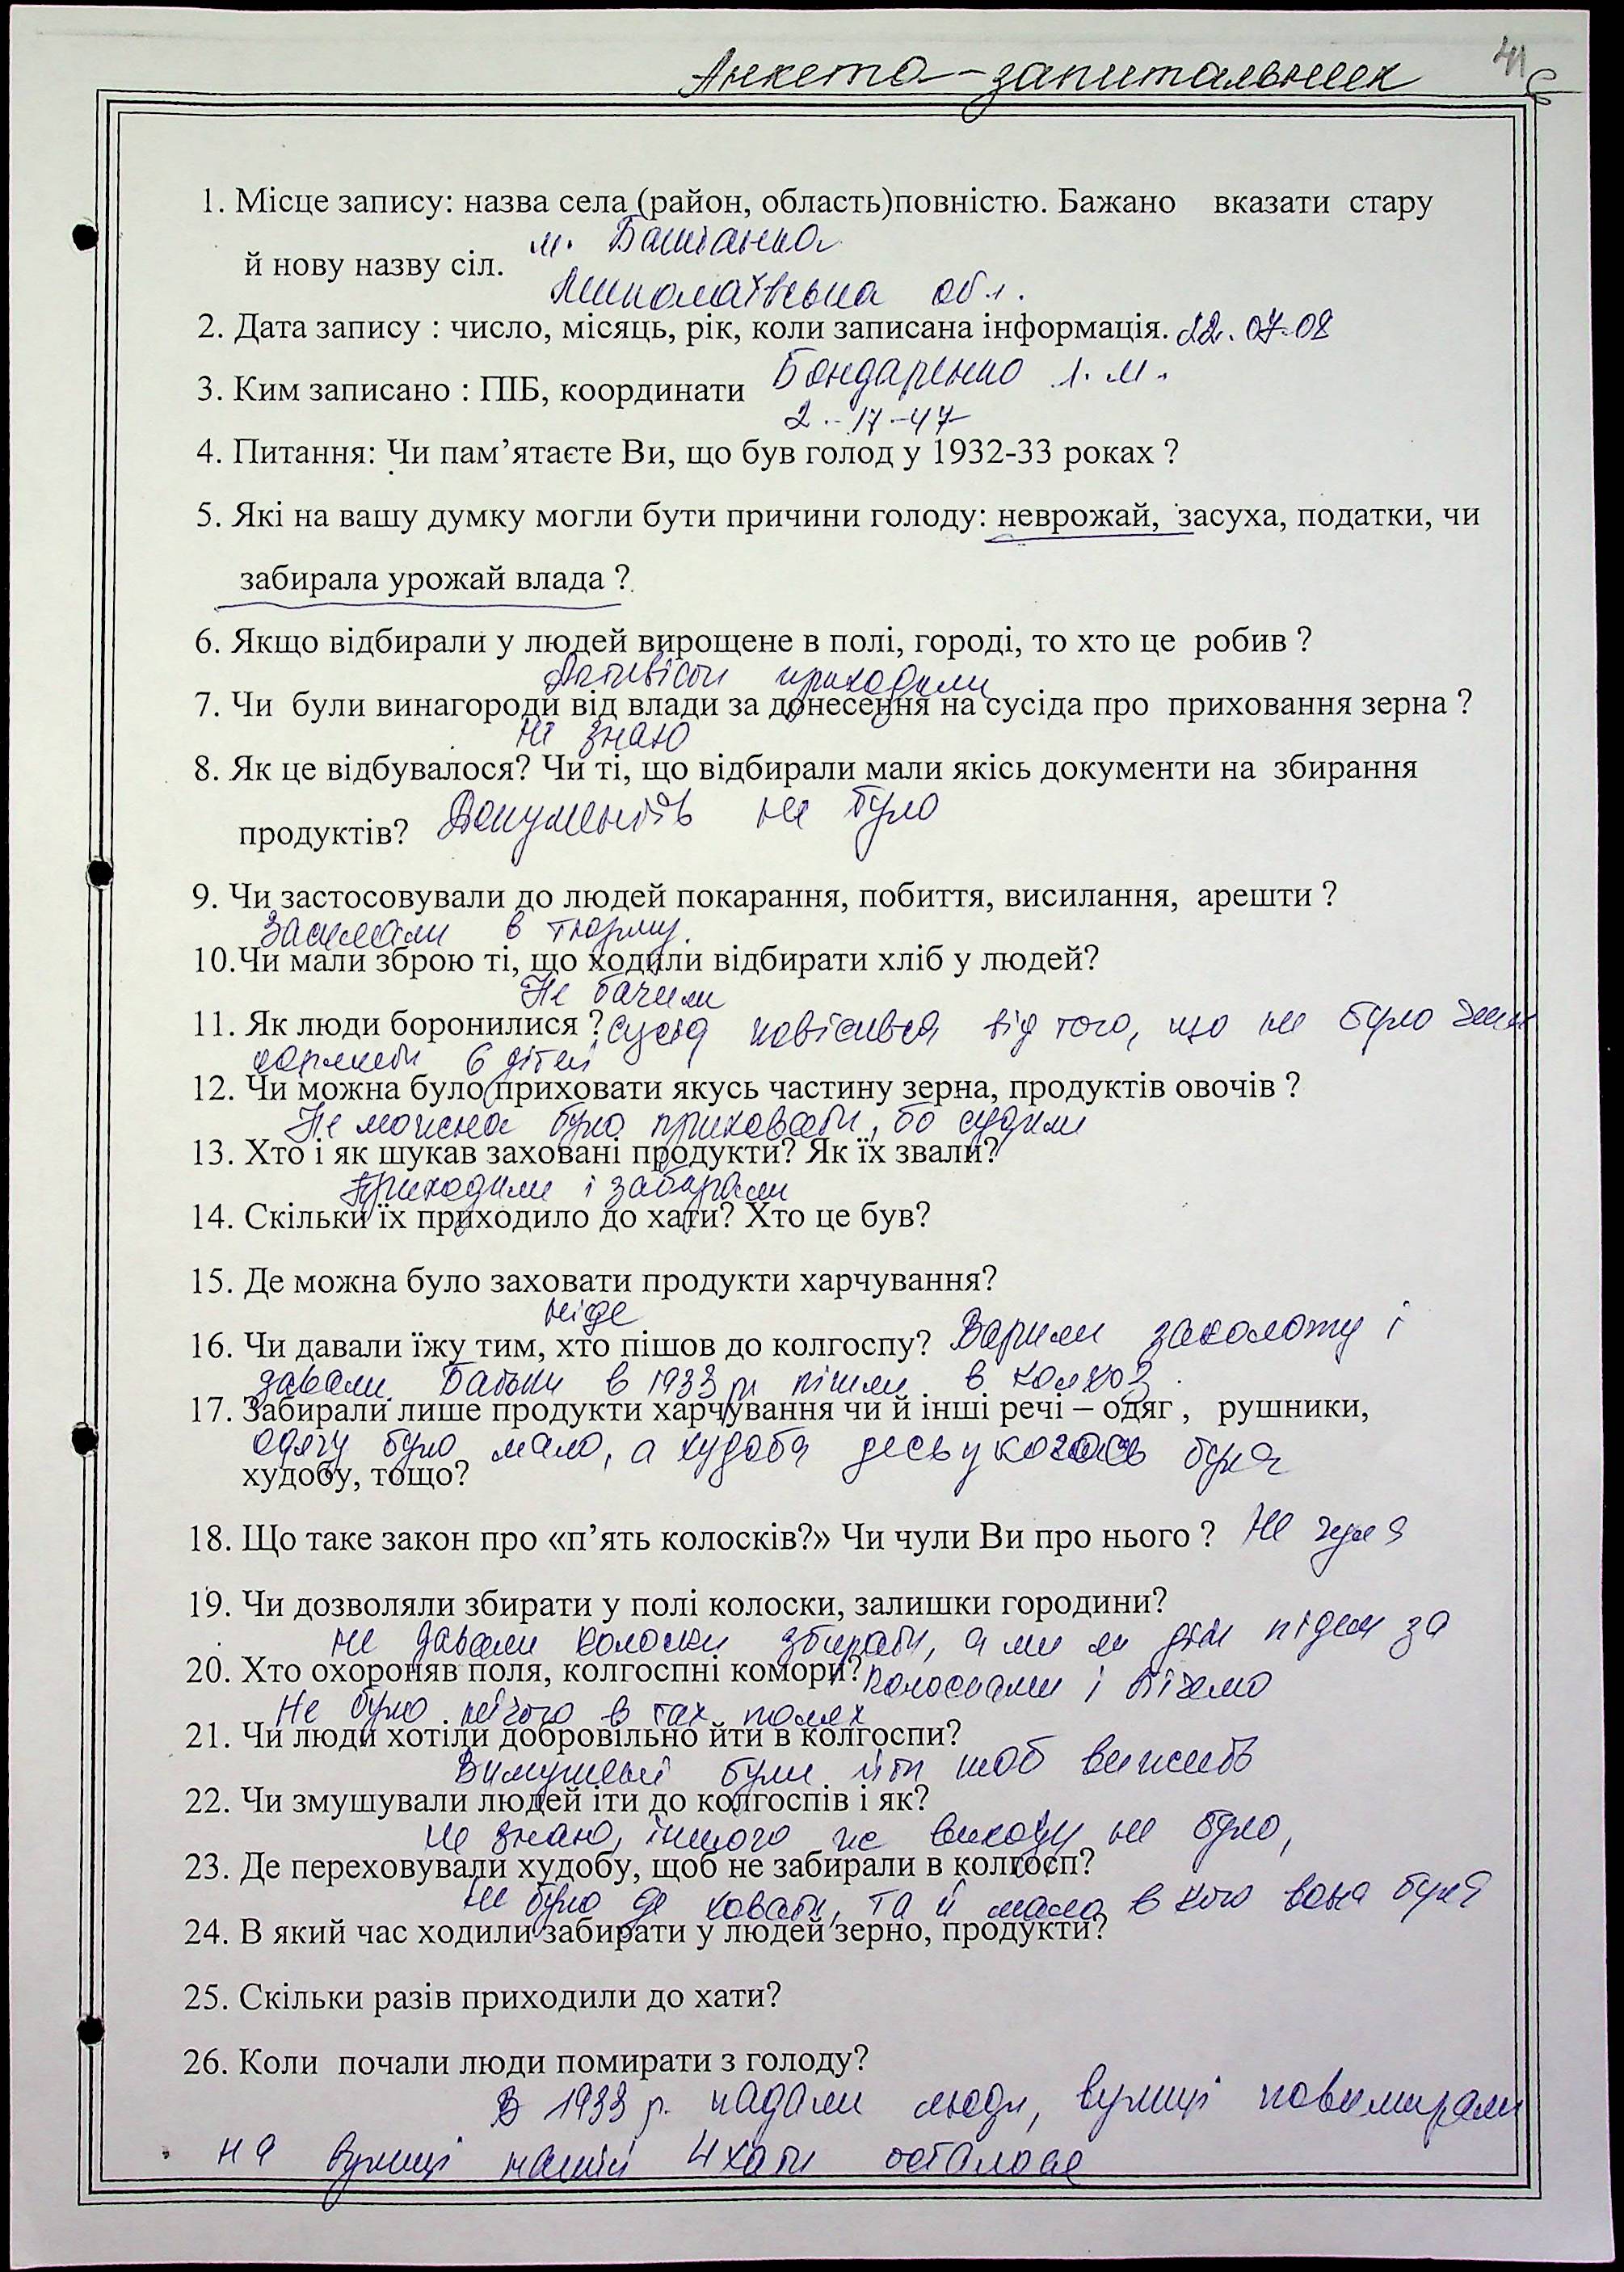 Анкета-запитальник
41
1. Місце запису: назва села (район, область)повністю. Бажано вказати стару
м. Баштанка
й нову назву сіл.
Миколаївська обл.
2. Дата запису : число, місяць, рік, коли записана інформація. 22.07.08
3. Ким записано : ПІБ, координати Бондаренко Л. М.
2-17-47
4. Питання: Чи пам’ятаєте Ви, що був голод у 1932-33 роках ?
5. Які на вашу думку могли бути причини голоду: неврожай, засуха, податки, чи
забирала урожай влада ?
6. Якщо відбирали у людей вирощене в полі, городі, то хто це робив ?
Активісти приходили
7. Чи були винагороди від влади за донесення на сусіда про приховання зерна ?
Не знаю
8. Як це відбувалося? Чи ті, що відбирали мали якісь документи на збирання
продуктів? Документів не було
9. Чи застосовували до людей покарання, побиття, висилання, арешти ?
Засилали в тюрму.
10.Чи мали зброю ті, що ходили відбирати хліб у людей?
Не бачили
11. Як люди боронилися ? Сусід повісився від того, що не було чим
кормити 6 дітей
12. Чи можна було приховати якусь частину зерна, продуктів овочів ?
Не можна було приховати, бо судили
13. Хто і як шукав заховані продукти? Як їх звали?
Приходили і забирали
14. Скільки їх приходило до хати? Хто це був?
15. Де можна було заховати продукти харчування?
ніде
16. Чи давали їжу тим, хто пішов до колгоспу? Варили заколоту і
давали. Батьки в 1933 р. пішли в колхоз.
17. Забирали лише продукти харчування чи й інші речі – одяг , рушники,
одягу було мало, а худоба десь у когось була
худобу, тощо?
18. Що таке закон про «п’ять колосків?» Чи чули Ви про нього ? Не чула
19. Чи дозволяли збирати у полі колоски, залишки городини?
Не давали колоски збирати, а ми як діти підем за
20. Хто охороняв поля, колгоспні комори? колосками і втічемо
Не було нічого в тах полях
21. Чи люди хотіли добровільно йти в колгоспи?
Вимушені були йти щоб вижить
22. Чи змушували людей іти до колгоспів і як?
Не знаю, іншого виходу не було,
23. Де переховували худобу, щоб не забирали в колгосп?
Не було де ховати, та й мало в кого вона була
24. В який час ходили забирати у людей зерно, продукти?
25. Скільки разів приходили до хати?
26. Коли почали люди помирати з голоду?
В 1933 р. падали люди, вулиці повимирали
на вулиці нашій 4 хати осталося